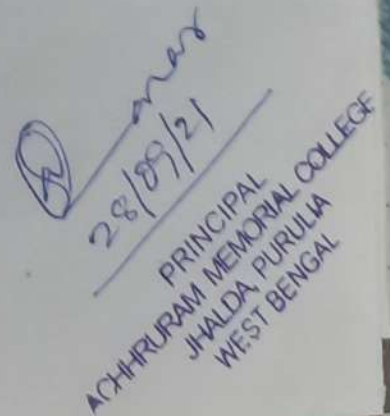 28/09/21
PRINCIPAL
ACHHRURAM MEMORIAL COLLEGE
JHALDA, PURULIA
WEST BENGAL